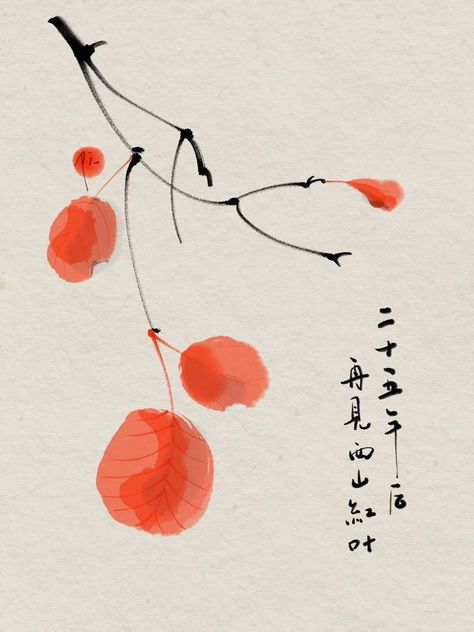 二十五年后
再見西山紅叶